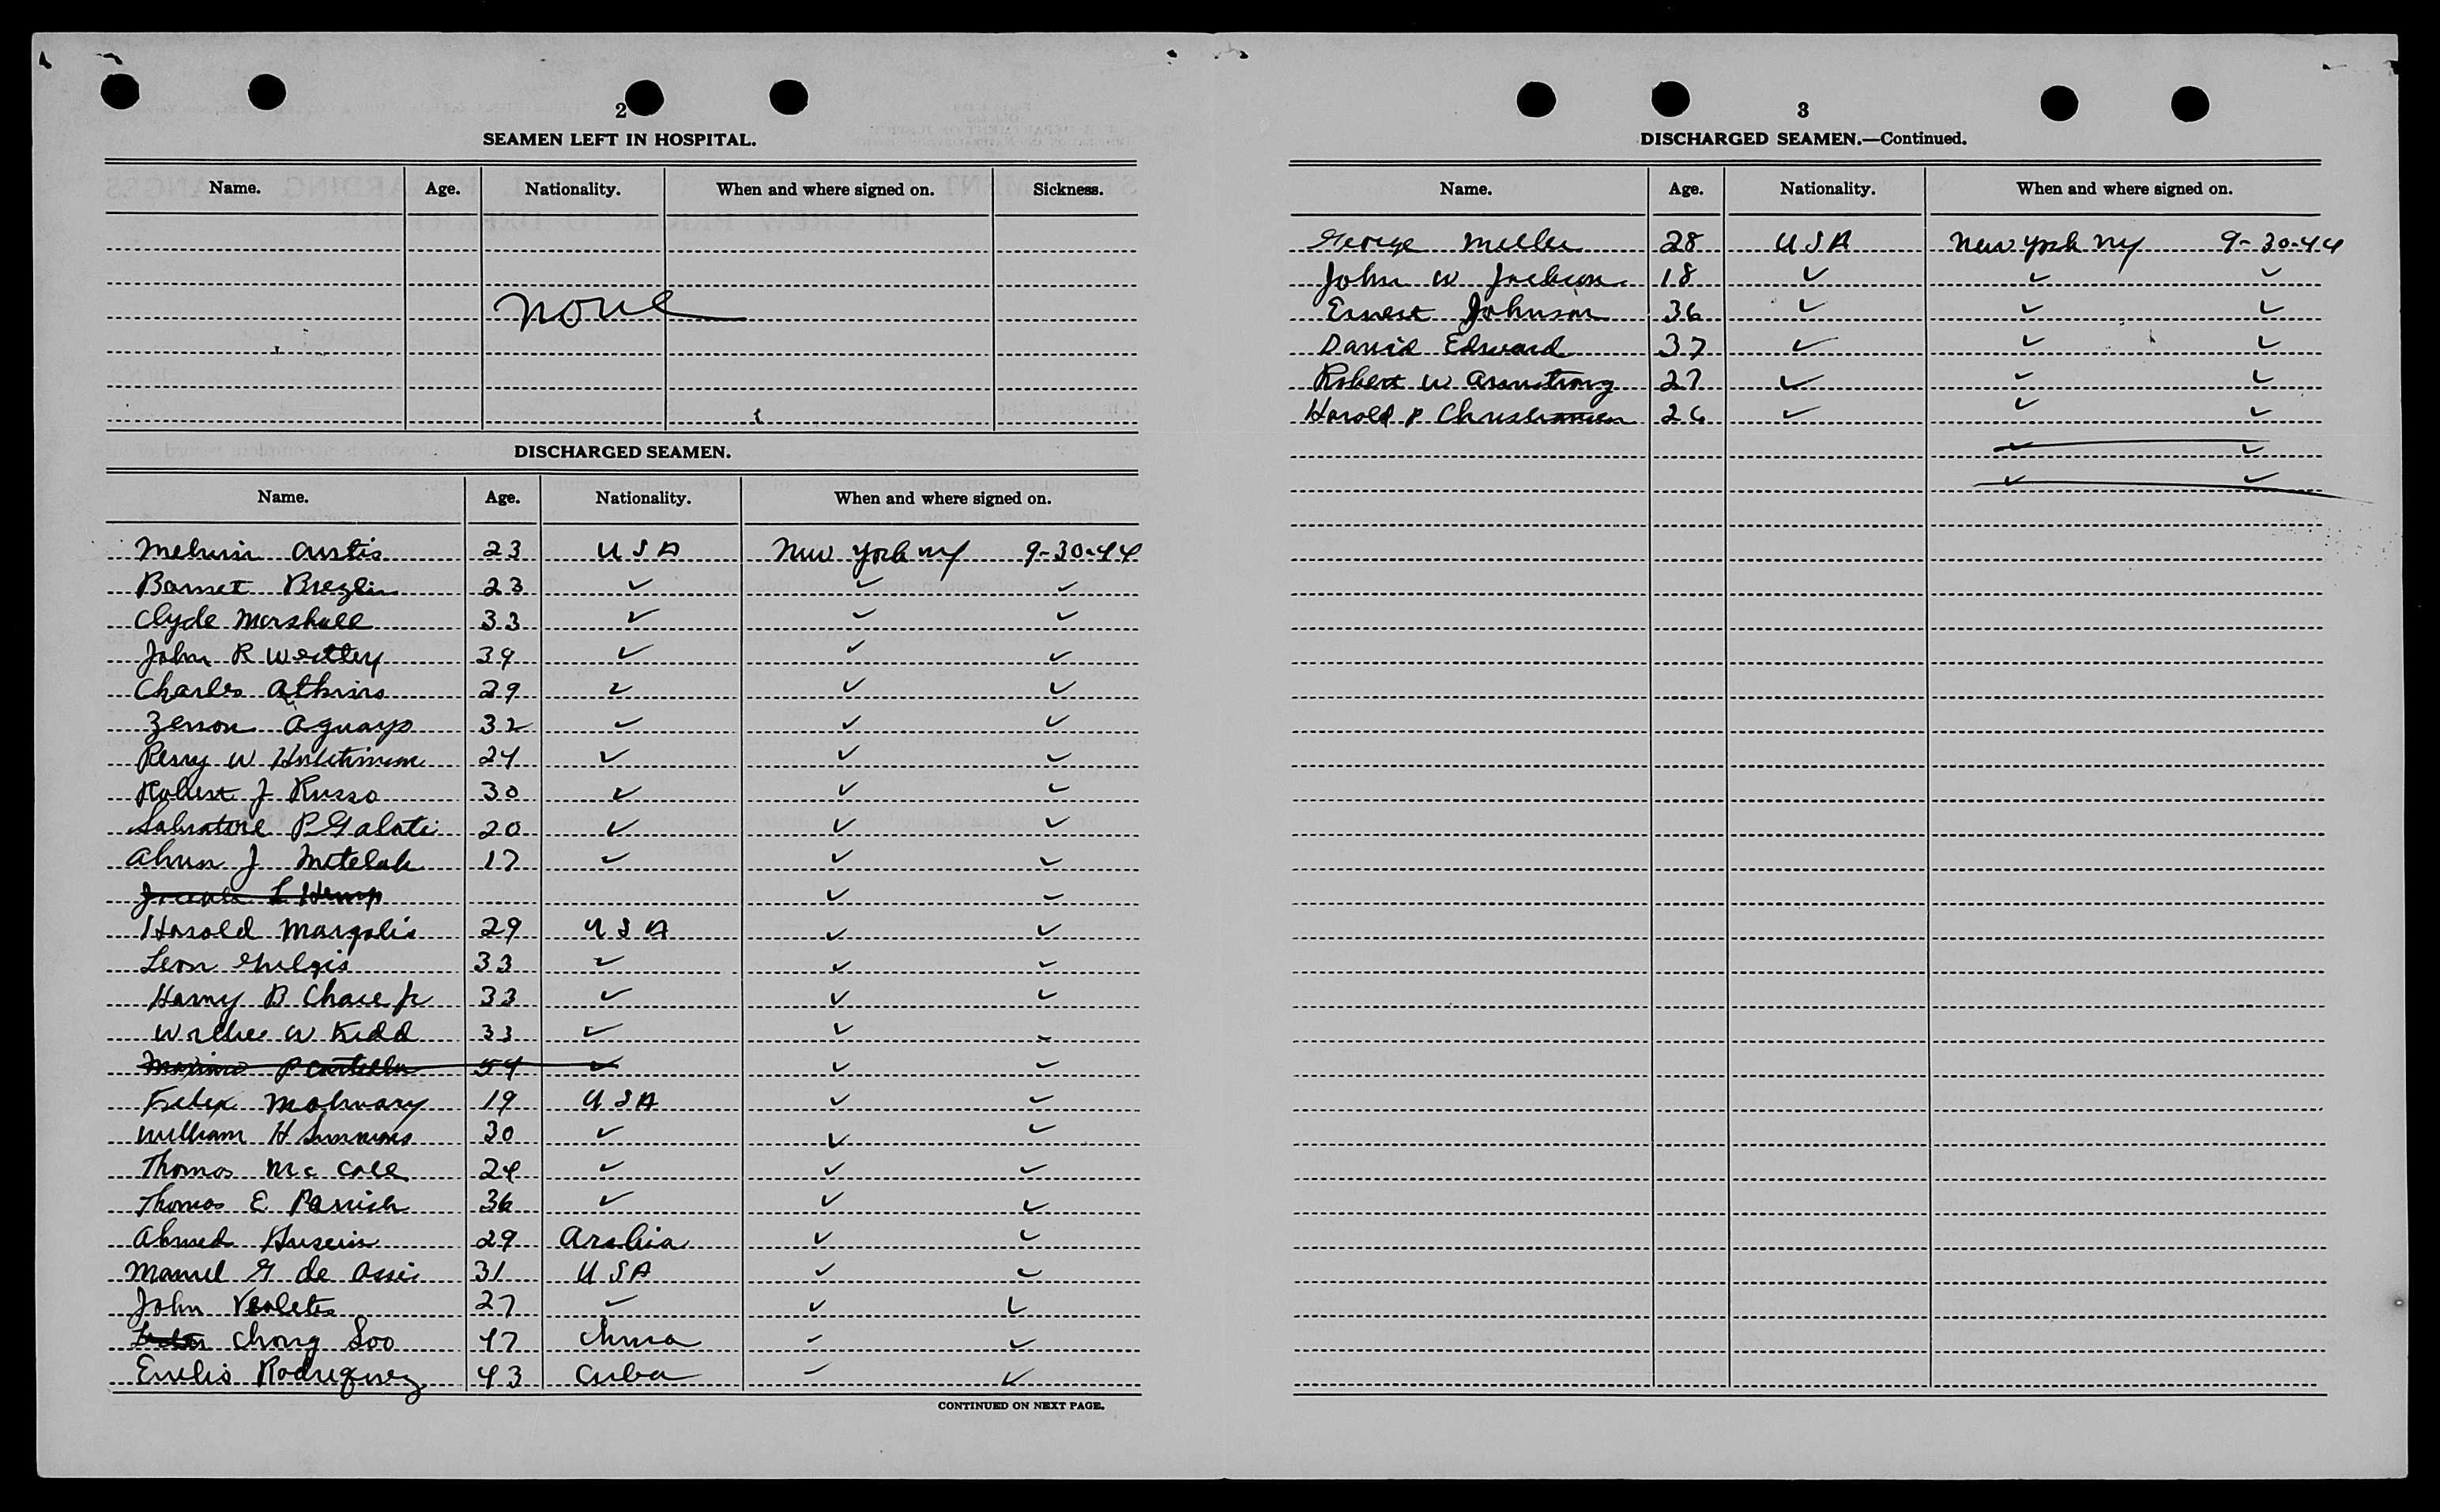 2
SEAMEN LEFT IN HOSPITAL.
Name. Age. Nationality. When and where signed on. Sickness.
None
DISCHARGED SEAMEN.
Name. Age. Nationality. When and where signed on.
Melvin 23 USA New York NY 9-30-44
Barnet Brezlin 23 ✓ ✓ ✓
Clyde Marshall 33 ✓ ✓ ✓
John R 39 ✓ ✓ ✓
Charles Atkins 29 ✓ ✓ ✓
Zenon Aguayo 32 ✓ ✓ ✓
Perry W 24 ✓ ✓ ✓
Robert J Russo 30 ✓ ✓ ✓
Salvatore P Galati 20 ✓ ✓ ✓
J 17 ✓ ✓ ✓
L Hemp ✓ ✓
Harold Margolis 29 USA ✓ ✓
Leon 33 ✓ ✓ ✓
Harry B Chace Jr 33 ✓ ✓ ✓
W Kidd 33 ✓ ✓ ✓
54 ✓ ✓ ✓
Felix 19 USA ✓ ✓
William H Simmons 30 ✓ ✓ ✓
Thomas Mc Call 24 ✓ ✓ ✓
Thomas E Parrish 36 ✓ ✓ ✓
Ahmed Husein 29 Arabia ✓ ✓
Manuel G de Assis 31 USA ✓ ✓
John 27 ✓ ✓ ✓
Chong Soo 47 China ✓ ✓
Emilio Rodriquez 43 Cuba ✓ ✓
CONTINUED ON NEXT PAGE.
3
DISCHARGED SEAMEN.—Continued.
Name. Age. Nationality. When and where signed on.
George Miller 28 USA New York NY 9-30-44
John W Jackson 18 ✓ ✓ ✓
Ernest Johnson 36 ✓ ✓ ✓
David Edward 37 ✓ ✓ ✓
Robert W Armstrong 27 ✓ ✓ ✓
Harold P Christiansen 26 ✓ ✓ ✓
✓ ✓
✓ ✓